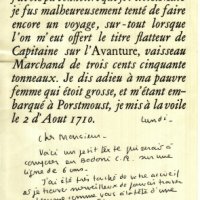 je fus malheureusement tenté de faire
encore un voyage, sur-tout lorsque
l'on m'eut offert le titre flatteur de
Capitaine sur l'Avanture, vaisseau
Marchand de trois cents cinquante
tonneaux. Je dis adieu à ma pauvre
femme qui étoit grosse, et m'étant em-
barqué à Portsmoust, je mis à la voile
le 2 d'Aout 1710.
Lundi-
Cher Monsieur-
Voici un petit texte que j'aimerais à
composer en Bodoni C.R. sur une
ligne de 6 cms.
J'ai été très touché de votre accueil